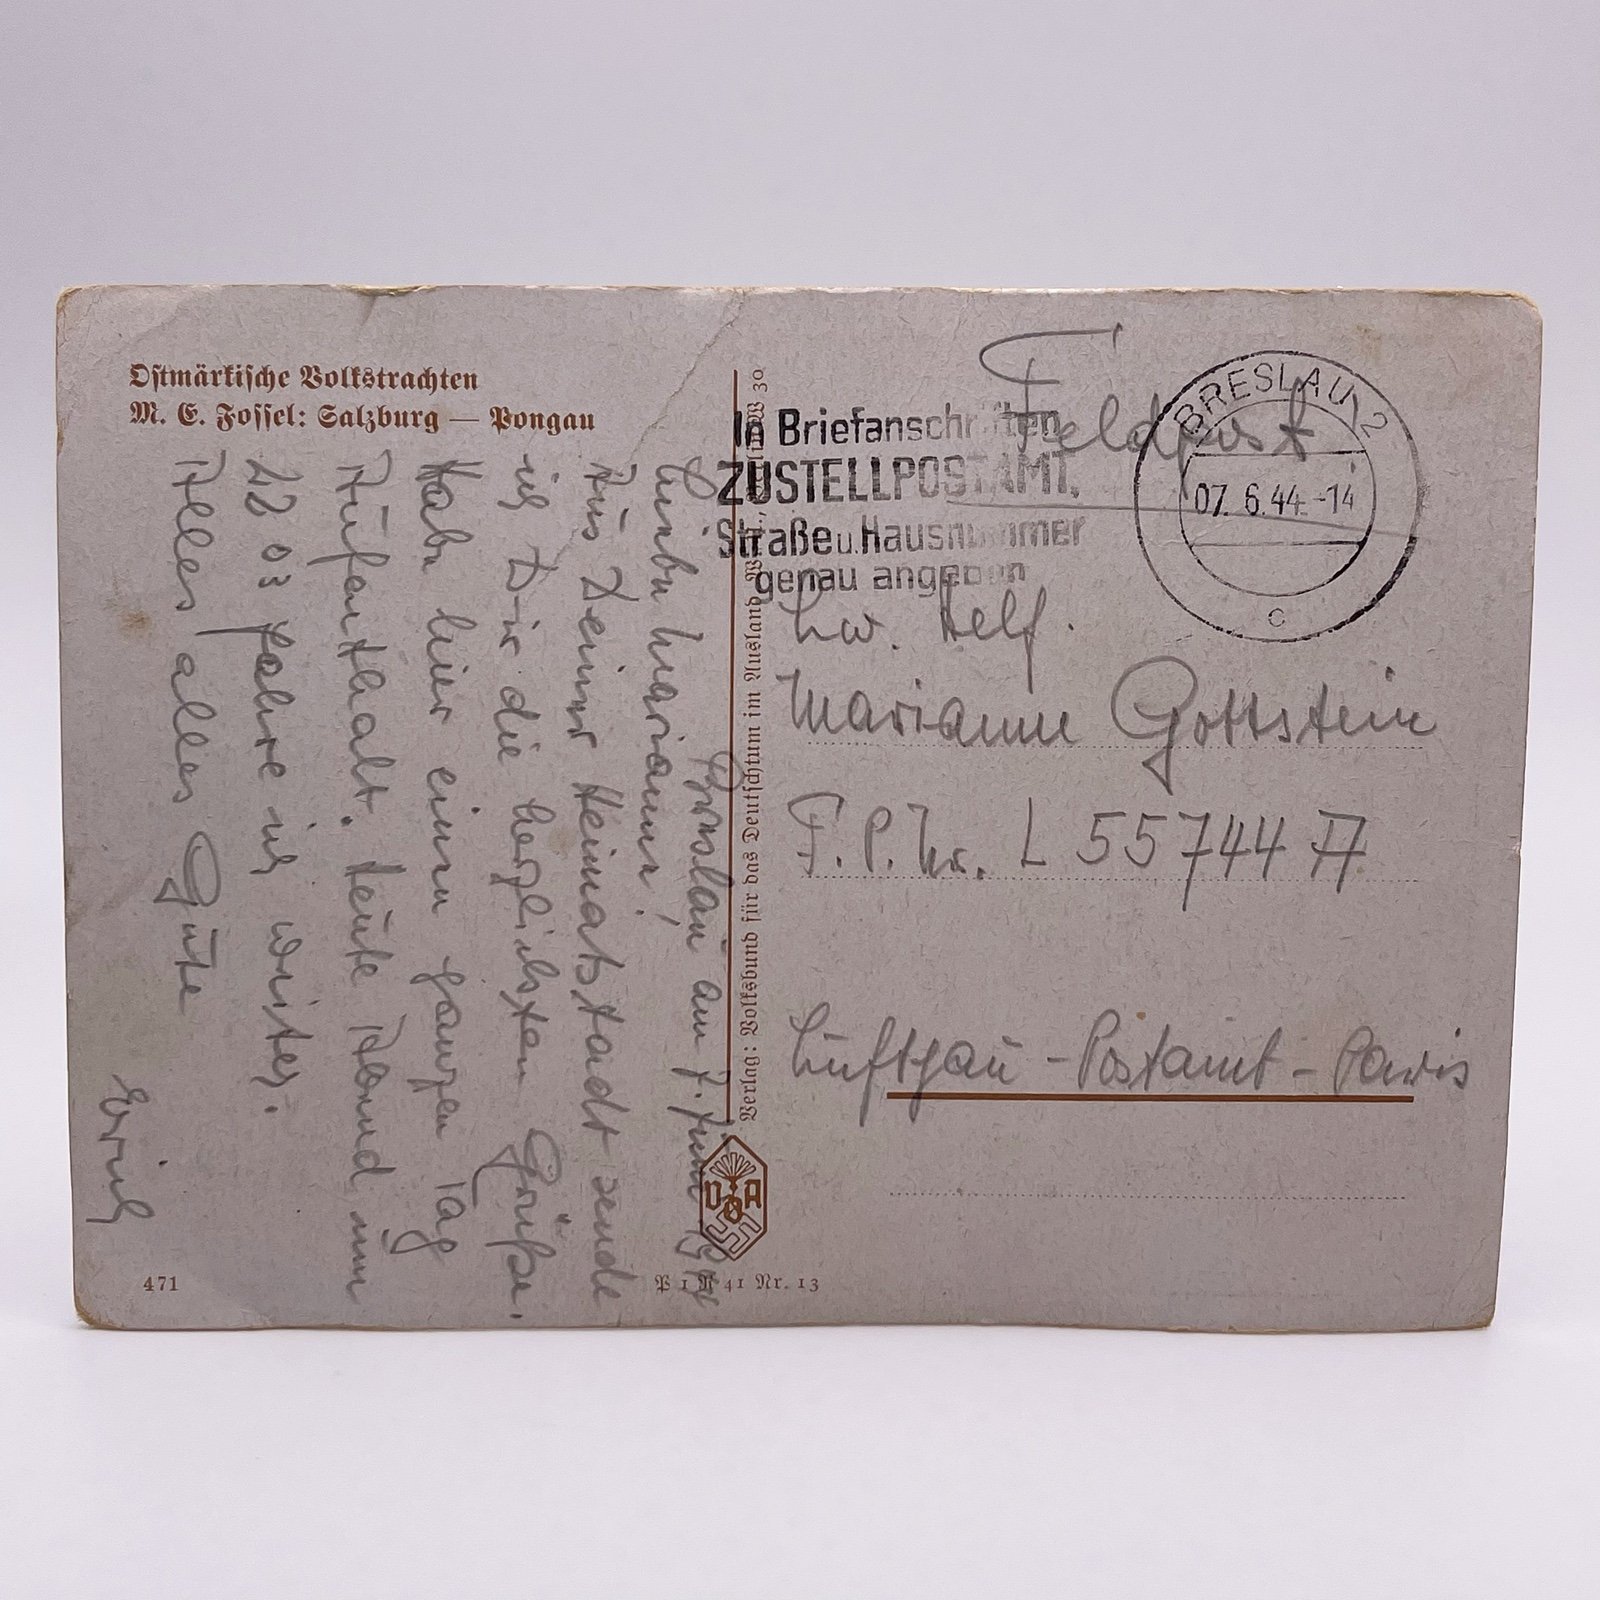 Ostmärkische Volkstrachten
M. E. Fossel: Salzburg — Pongau
Breslau, am 7. Juni 1944
Liebe Marianne!
Aus Deiner Heimatstadt sende
ich Dir die herzlichsten Grüße.
Habe hier einen ganzen Tag
Aufenthalt. Heute Abend um
22 03 fahre ich weiter.
Alles alles Gute
Erich
471
Verlag: Volksbund für das Deutschtum im Ausland, W 30
VDA
P 1 R 41 Nr. 13
In Briefanschriften
ZUSTELLPOSTAMT,
Straße u. Hausnummer
genau angeben
BRESLAU 2
07. 6. 44.-14
c
Feldpost
Lw. Helf.
Marianne Gottstein
F. P. Nr. L 55744 A
Luftgau - Postamt - Paris